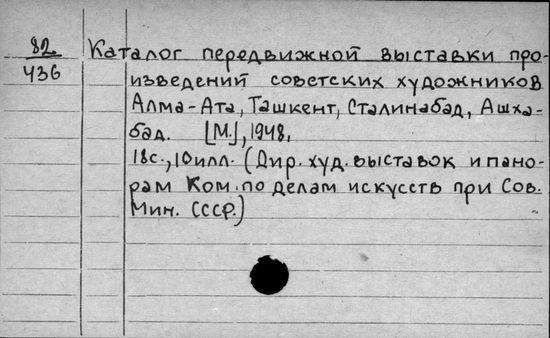 82
436
Каталог передвижной выставки про-
изведений советских художников
Алма-Ата, Ташкент, Сталинабад, Ашха-
бад. [М.], 1948,
18с., 10илл. (Дир. худ. выставок и пано-
рам Ком. по делам искусств при Сов.
Мин. СССР.)